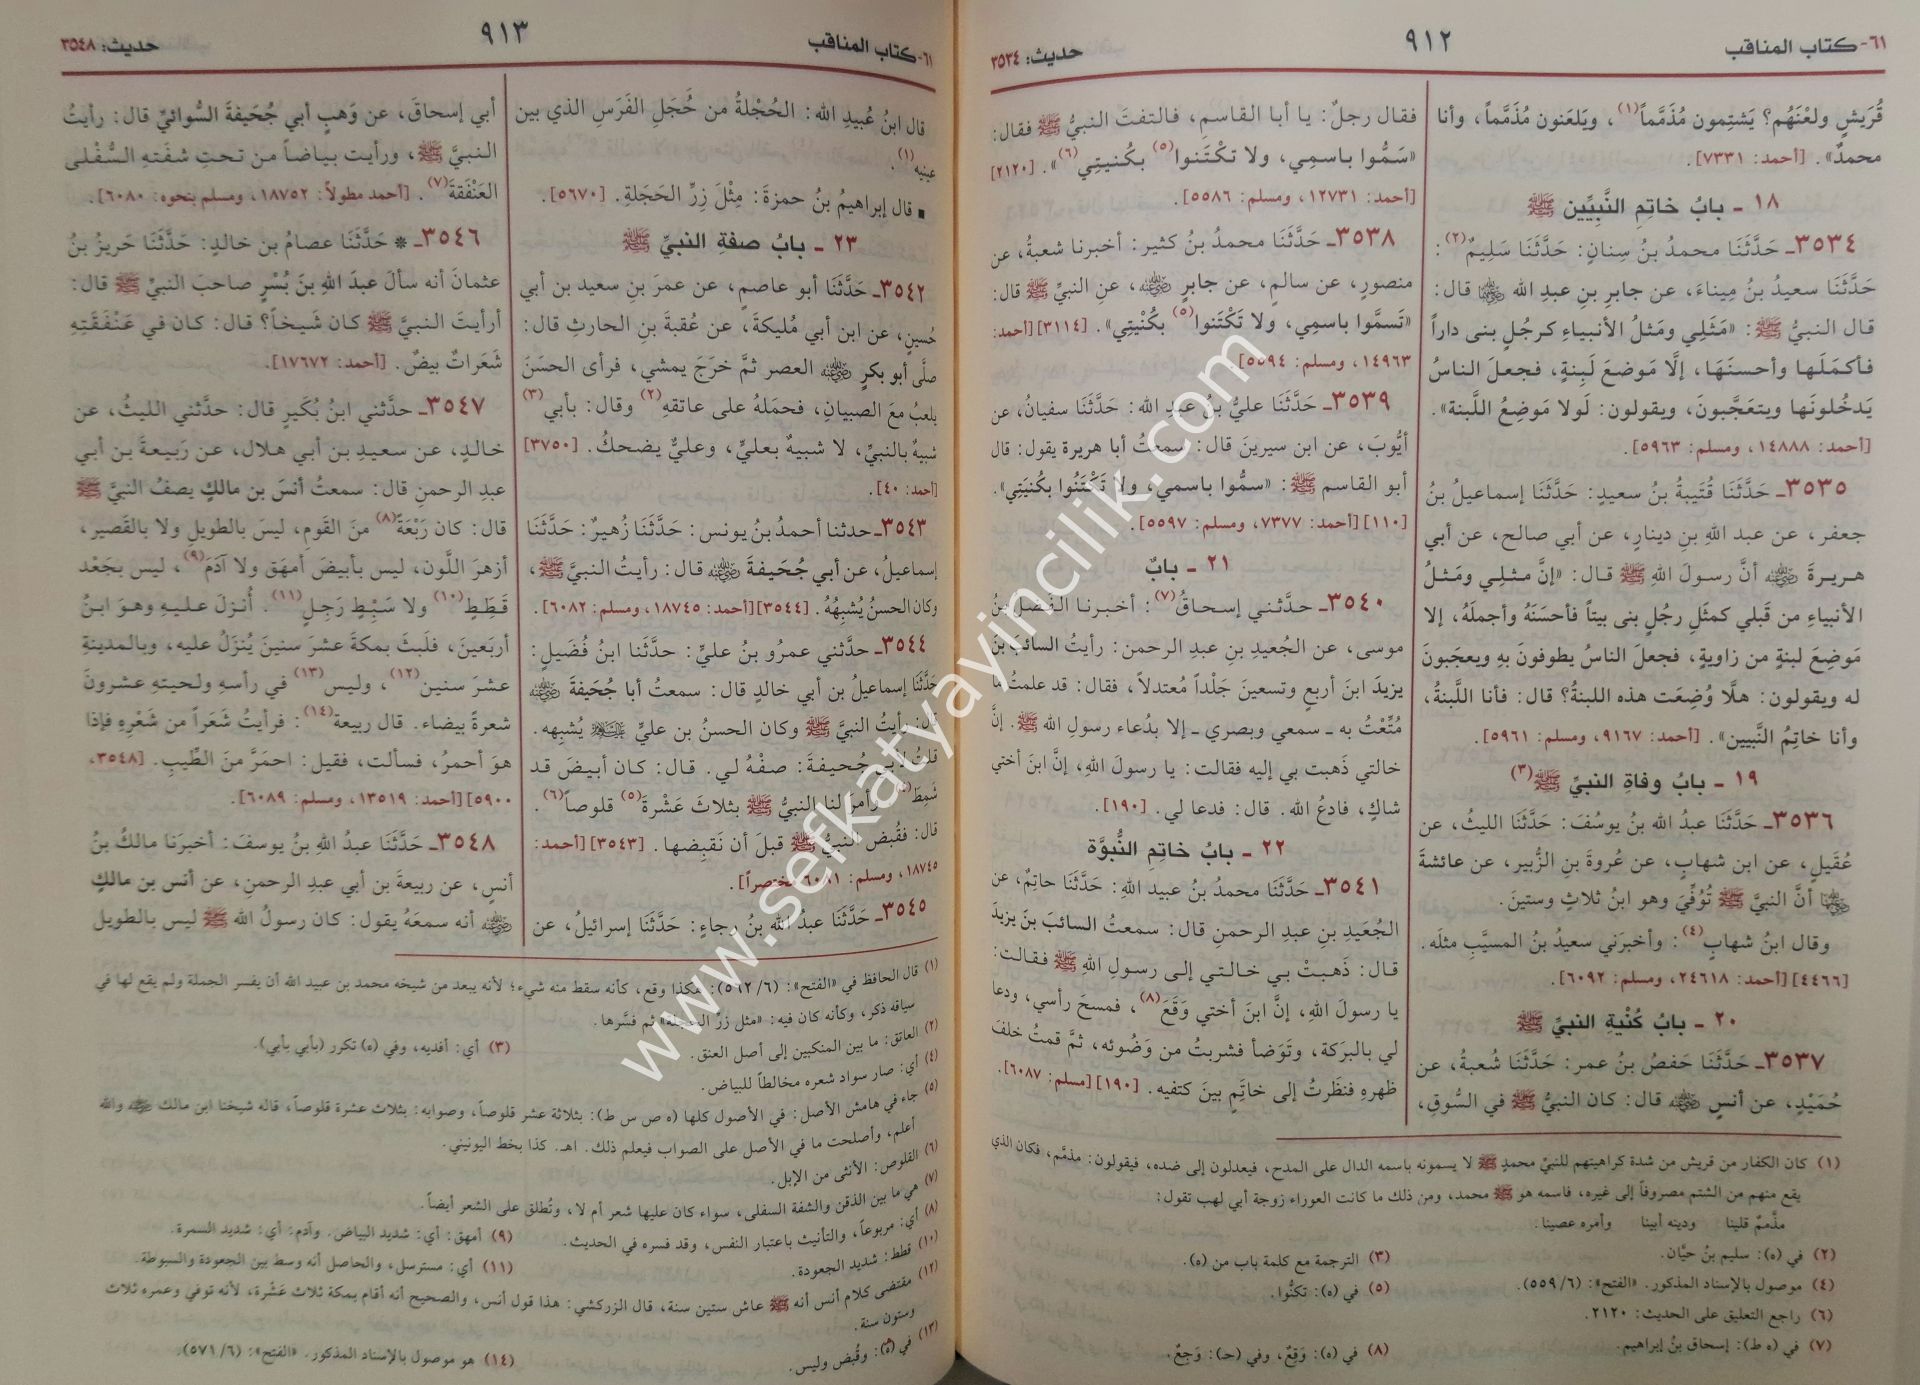 ٦١- كتاب المناقب
٩١٢
حديث: ٣٥٣٤
قُرَيشٍ ولعْنَهُم؟ يَشتِمون مُذَمَّماً(١)، ويَلعَنون مُذَمَّماً، وأنا
محمدٌ». [أحمد: ٧٣٣١].
١٨ ـ بابُ خاتِمِ النَّبِيِّين ﷺ
٣٥٣٤ـ حَدَّثَنَا محمدُ بنُ سِنانٍ: حَدَّثَنَا سَلِيمٌ(٢):
حَدَّثَنَا سعيدُ بنُ مِيناءَ، عن جابرِ بنِ عبدِ الله ﵄ قال:
قال النبيُّ ﷺ: «مَثَلِي ومَثلُ الأنبياءِ كرجُلٍ بنى داراً
فأكمَلَها وأحسنَهَا، إلَّا مَوضعَ لَبِنةٍ، فجعلَ الناسُ
يَدخُلونَها ويتعَجَّبونَ، ويقولون: لَولا مَوضِعُ اللَّبنة».
[أحمد: ١٤٨٨٨، ومسلم: ٥٩٦٣].
٣٥٣٥ـ حَدَّثَنَا قُتَيبةُ بنُ سعيدٍ: حَدَّثَنَا إسماعيلُ بنُ
جعفر، عن عبد اللهِ بنِ دينارٍ، عن أبي صالح، عن أبي
هريرةَ ﵁ أنَّ رسولَ اللهِ ﷺ قال: «إنَّ مثلِي ومَثلُ
الأنبياءِ من قَبلي كمثَلِ رجُلٍ بنى بيتاً فأحسَنَهُ وأجملَهُ، إلا
مَوضِعَ لبنةٍ من زاويةٍ، فجعلَ الناسُ يطوفونَ بهِ ويعجَبونَ
له ويقولون: هلَّا وُضِعَت هذه اللبنةُ؟ قال: فأنا اللَّبنةُ،
وأنا خاتِمُ النَّبيين». [أحمد: ٩١٦٧، ومسلم: ٥٩٦١].
١٩ ـ بابُ وفاةِ النبيِّ ﷺ(٣)
٣٥٣٦ـ حَدَّثَنَا عبدُ الله بنُ يوسُفَ: حَدَّثَنَا الليثُ، عن
عُقَيلٍ، عن ابن شهابٍ، عن عُروةَ بنِ الزُّبير، عن عائشةَ
﵂ أنَّ النبيَّ ﷺ تُوُفِّيَ وهو ابنُ ثلاثٍ وستينَ.
وقال ابنُ شهابٍ(٤): وأخبرَني سعيدُ بنُ المسيَّبِ مثلَه.
[٤٤٦٦] [أحمد: ٢٤٦١٨، ومسلم: ٦٠٩٢].
٢٠ ـ بابُ كُنْيةِ النبيِّ ﷺ
٣٥٣٧ـ حَدَّثَنَا حَفصُ بنُ عمر: حَدَّثَنَا شُعبةُ، عن
حُمَيْدٍ، عن أنسٍ ﵁ قال: كان النبيُّ ﷺ في السُّوقِ،
فقال رجلٌ: يا أبا القاسمِ، فالتفتَ النبيُّ ﷺ فقال:
«سَمُّوا باسمِي، ولا تكْتَنوا(٥) بكُنيتِي(٦)». [٢١٢٠]
[أحمد: ١٢٧٣١، ومسلم: ٥٥٨٦].
٣٥٣٨ـ حَدَّثَنَا محمدُ بنُ كثير: أخبرنا شعبةُ، عن
منصورٍ، عن سالمٍ، عن جابرٍ ﵁، عنِ النبيِّ ﷺ قال:
«تَسمَّوا باسمِي، ولا تَكْتَنوا(٥) بكُنْيتِي». [٣١١٤] [أحمد:
١٤٩٦٣، ومسلم: ٥٥٩٤].
٣٥٣٩ـ حَدَّثَنَا عليُّ بنُ عبدِ الله: حَدَّثَنَا سفيانُ، عن
أيُّوبَ، عن ابن سيرينَ قال: سمعتُ أبا هريرة يقول: قال
أبو القاسم ﷺ: «سمُّوا باسمي، ولا تَكْتَنُوا بكُنيَتِي».
[١١٠] [أحمد: ٧٣٧٧، ومسلم: ٥٥٩٧].
٢١ ـ بابٌ
٣٥٤٠ـ حدَّثني إسحاقُ(٧): أخبرنا الفَضلُ بنُ
موسى، عن الجُعيدِ بنِ عبدِ الرحمن: رأيتُ السائبَ بنَ
يزيدَ ابنَ أربعٍ وتسعين جَلْداً مُعتدلاً، فقال: قد علمتُ ما
مُتِّعْتُ به ـ سمعي وبصري ـ إلا بدُعاء رسولِ الله ﷺ. إنَّ
خالتي ذَهبت بي إليه فقالت: يا رسولَ اللهِ، إنَّ ابنَ أختي
شاكٍ، فادعُ الله. قال: فدعا لي. [١٩٠].
٢٢ ـ بابُ خاتِمِ النُّبوَّة
٣٥٤١ـ حَدَّثَنَا محمدُ بنُ عبيدِ اللهِ: حَدَّثَنَا حاتِمٌ، عن
الجُعَيدِ بنِ عبدِ الرحمنِ قال: سمعتُ السائبَ بنَ يزيدَ
قال: ذَهبتْ بي خالتي إلى رسولِ اللهِ ﷺ فقالت:
يا رسولَ اللهِ، إنَّ ابنَ أختي وَقَعَ(٨)، فمسحَ رأسي، ودعا
لي بالبرَكة، وتَوَضأ فشربتُ من وَضُوئه، ثمَّ قمتُ خلفَ
ظهرهِ فنظَرتُ إلى خاتَمٍ بينَ كتفيه. [١٩٠] [مسلم: ٦٠٨٧].
(١) كان الكفار من قريش من شدة كراهيتهم للنبيِّ محمدٍ ﷺ لا يسمونه باسمه الدال على المدح، فيعدلون إلى ضده، فيقولون: مذمَّم، فكان الذي
يقع منهم من الشتم مصروفاً إلى غيره، فاسمه هو ﷺ محمد، ومن ذلك ما كانت العوراء زوجة أبي لهب تقول:
مذَّممٌ قلينا ودينه أبينا وأمره عصينا.
(٢) في (ه): سليم بنُ حيَّان.
(٣) الترجمة مع كلمة باب من (ه).
(٤) موصول بالإسناد المذكور. «الفتح»: (٦/ ٥٥٩).
(٥) في (ه): تكنُّوا.
(٦) راجع التعليق على الحديث: ٢١٢٠.
(٧) في (ه ط): إسحاق بنُ إبراهيم.
(٨) في (ه): وَقِعٌ، وفي (حـ): وَجِعٌ.
٦١- كتاب المناقب
٩١٣
حديث: ٣٥٤٨
قال ابنُ عُبيدِ الله: الحُجْلةُ من حُجَلِ الفَرَسِ الذي بين
عينيه(١).
■ قال إبراهيمُ بنُ حمزةَ: مِثْلَ زِرِّ الحَجَلةِ. [٥٦٧٠].
٢٣ ـ بابُ صفةِ النبيِّ ﷺ
٣٥٤٢ـ حَدَّثَنَا أبو عاصمٍ، عن عمرَ بنِ سعيد بن أبي
حُسينٍ، عن ابن أبي مُليكةَ، عن عُقبةَ بنِ الحارثِ قال:
صلَّى أبو بكرٍ ﵁ العصر ثمَّ خرَجَ يمشي، فرأى الحسَنَ
يلعبُ معَ الصبيانِ، فحمَلهُ على عاتقهِ(٢) وقال: بأبي(٣)
شبيهٌ بالنبيِّ، لا شبيهٌ بعليِّ، وعليٌّ يضحكُ. [٣٧٥٠]
[أحمد: ٤٠].
٣٥٤٣ـ حدثنا أحمدُ بنُ يونس: حَدَّثَنَا زُهيرٌ: حَدَّثَنَا
إسماعيلُ، عن أبي جُحَيفةَ ﵁ قال: رأيتُ النبيَّ ﷺ،
وكان الحسنُ يُشبِهُهُ. [٣٥٤٤] [أحمد: ١٨٧٤٥، ومسلم: ٦٠٨٢].
٣٥٤٤ـ حدَّثني عمرُو بنُ عليٍّ: حدَّثنا ابنُ فُضَيلٍ:
حَدَّثَنَا إسماعيلُ بن أبي خالدٍ قال: سمعتُ أبا جُحَيفةَ ﵁
قال: رأيتُ النبيَّ ﷺ وكان الحسنُ بن عليٍّ ﵉ يُشبِهه.
قلتُ لأبي جُحيفةَ: صفْهُ لي. قال: كان أبيضَ قد
شَمِطَ، وأمرَ لنا النبيُّ ﷺ بثلاثَ عَشْرةَ(٥) قلوصاً(٦).
قال: فقُبض النبيُّ ﷺ قبلَ أن نَقبِضها. [٣٥٤٣] [أحمد:
١٨٧٤٥، ومسلم: ٦٠٨١ مختصراً].
٣٥٤٥ـ حَدَّثَنَا عبدُ الله بنُ رجاءٍ: حَدَّثَنَا إسرائيلُ، عن
أبي إسحاقَ، عن وَهبٍ أبي جُحَيفةَ السُّوائيِّ قال: رأيتُ
النبيَّ ﷺ، ورأيت بياضاً من تحتِ شفَتهِ السُّفْلى
العَنْفَقةَ(٧). [أحمد مطولاً: ١٨٧٥٢، ومسلم بنحوه: ٦٠٨٠].
٣٥٤٦ـ * حَدَّثَنَا عصامُ بن خالدٍ: حَدَّثَنَا حَريزُ بنُ
عثمانَ أنه سألَ عبدَ اللهِ بنَ بُسْرٍ صاحبَ النبيِّ ﷺ قال:
أرأيتَ النبيَّ ﷺ كان شَيخاً؟ قال: كان في عَنْفَقَتِهِ
شَعَراتٌ بيضٌ. [أحمد: ١٧٦٧٢].
٣٥٤٧ـ حدَّثني ابنُ بُكَيرٍ قال: حدَّثني الليثُ، عن
خالدٍ، عن سعيدِ بن أبي هلال، عن رَبيعةَ بن أبي
عبدِ الرحمنِ قال: سمعتُ أنسَ بن مالكٍ يصفُ النبيَّ ﷺ
قال: كان رَبْعَةً(٨) منَ القَومِ، ليسَ بالطويلِ ولا بالقَصير،
أزهرَ اللَّون، ليس بأبيضَ أمهَق ولا آدَمَ(٩)، ليس بجَعْد
قَطَطٍ(١٠) ولا سَبْطٍ رَجِلٍ(١١). أُنزلَ عليهِ وهوَ ابنُ
أربعينَ، فلَبثَ بمكة عشرَ سنينَ يُنزَلُ عليه، وبالمدينةِ
عشرَ سنين(١٢)، وليس(١٣) في رأسهِ ولحيتهِ عشرونَ
شعرةً بيضاء. قال ربيعة(١٤): فرأيتُ شَعَراً من شَعْرِهِ فإذا
هوَ أحمرُ، فسألت، فقيل: احمَرَّ منَ الطِّيبِ. [٣٥٤٨،
٥٩٠٠] [أحمد: ١٣٥١٩، ومسلم: ٦٠٨٩].
٣٥٤٨ـ حَدَّثَنَا عبدُ اللهِ بنُ يوسفَ: أخبرَنا مالكُ بنُ
أنسٍ، عن ربيعةَ بن أبي عبدِ الرحمنِ، عن أنس بن مالكٍ
﵁ أنه سمعَهُ يقول: كان رسولُ الله ﷺ ليس بالطويل
(١) قال الحافظ في «الفتح»: (٦/ ٥٦٢): هكذا وقع، كأنه سقط منه شيء؛ لأنه يبعد من شيخه محمد بن عبيد الله أن يفسر الجملة ولم يقع لها في
سياقه ذكر، وكأنه كان فيه: «مثل زرِّ الحجلة» ثم فسَّرها.
(٢) العاتق: ما بين المنكبين إلى أصل العنق.
(٣) أي: أفديه، وفي (ه) تكرر (بأبي بأبي).
(٤) أي: صار سواد شعره مخالطاً للبياض.
(٥) جاء في هامش الأصل: في الأصول كلها (ه ص س ط): بثلاثة عشر قلوصاً، وصوابه: بثلاث عشرة قلوصاً، قاله شيخنا ابن مالك ﵁ والله
أعلم، وأصلحت ما في الأصل على الصواب فيعلم ذلك. اهـ. كذا بخط اليونيني.
(٦) القلوص: الأنثى من الإبل.
(٧) هي ما بين الذقن والشفة السفلى، سواء كان عليها شعر أم لا، وتُطلق على الشعر أيضاً.
(٨) أي: مربوعاً، والتأنيث باعتبار النفس، وقد فسره في الحديث.
(٩) أمهق: أي: شديد البياض. وآدم: أي: شديد السمرة.
(١٠) قطط: شديد الجعودة.
(١١) أي: مسترسل، والحاصل أنه وسط بين الجعودة والسبوطة.
(١٢) مقتضى كلام أنس أنه ﷺ عاش ستين سنة، قال الزركشي: هذا قول أنس، والصحيح أنه أقام بمكة ثلاث عَشْرة، لأنه توفي وعمره ثلاث
وستون سنة.
(١٣) في (ه): وقُبض وليس.
(١٤) هو موصول بالإسناد المذكور. «الفتح»: (٦/ ٥٧١).
www.sefkatyayincilik.com